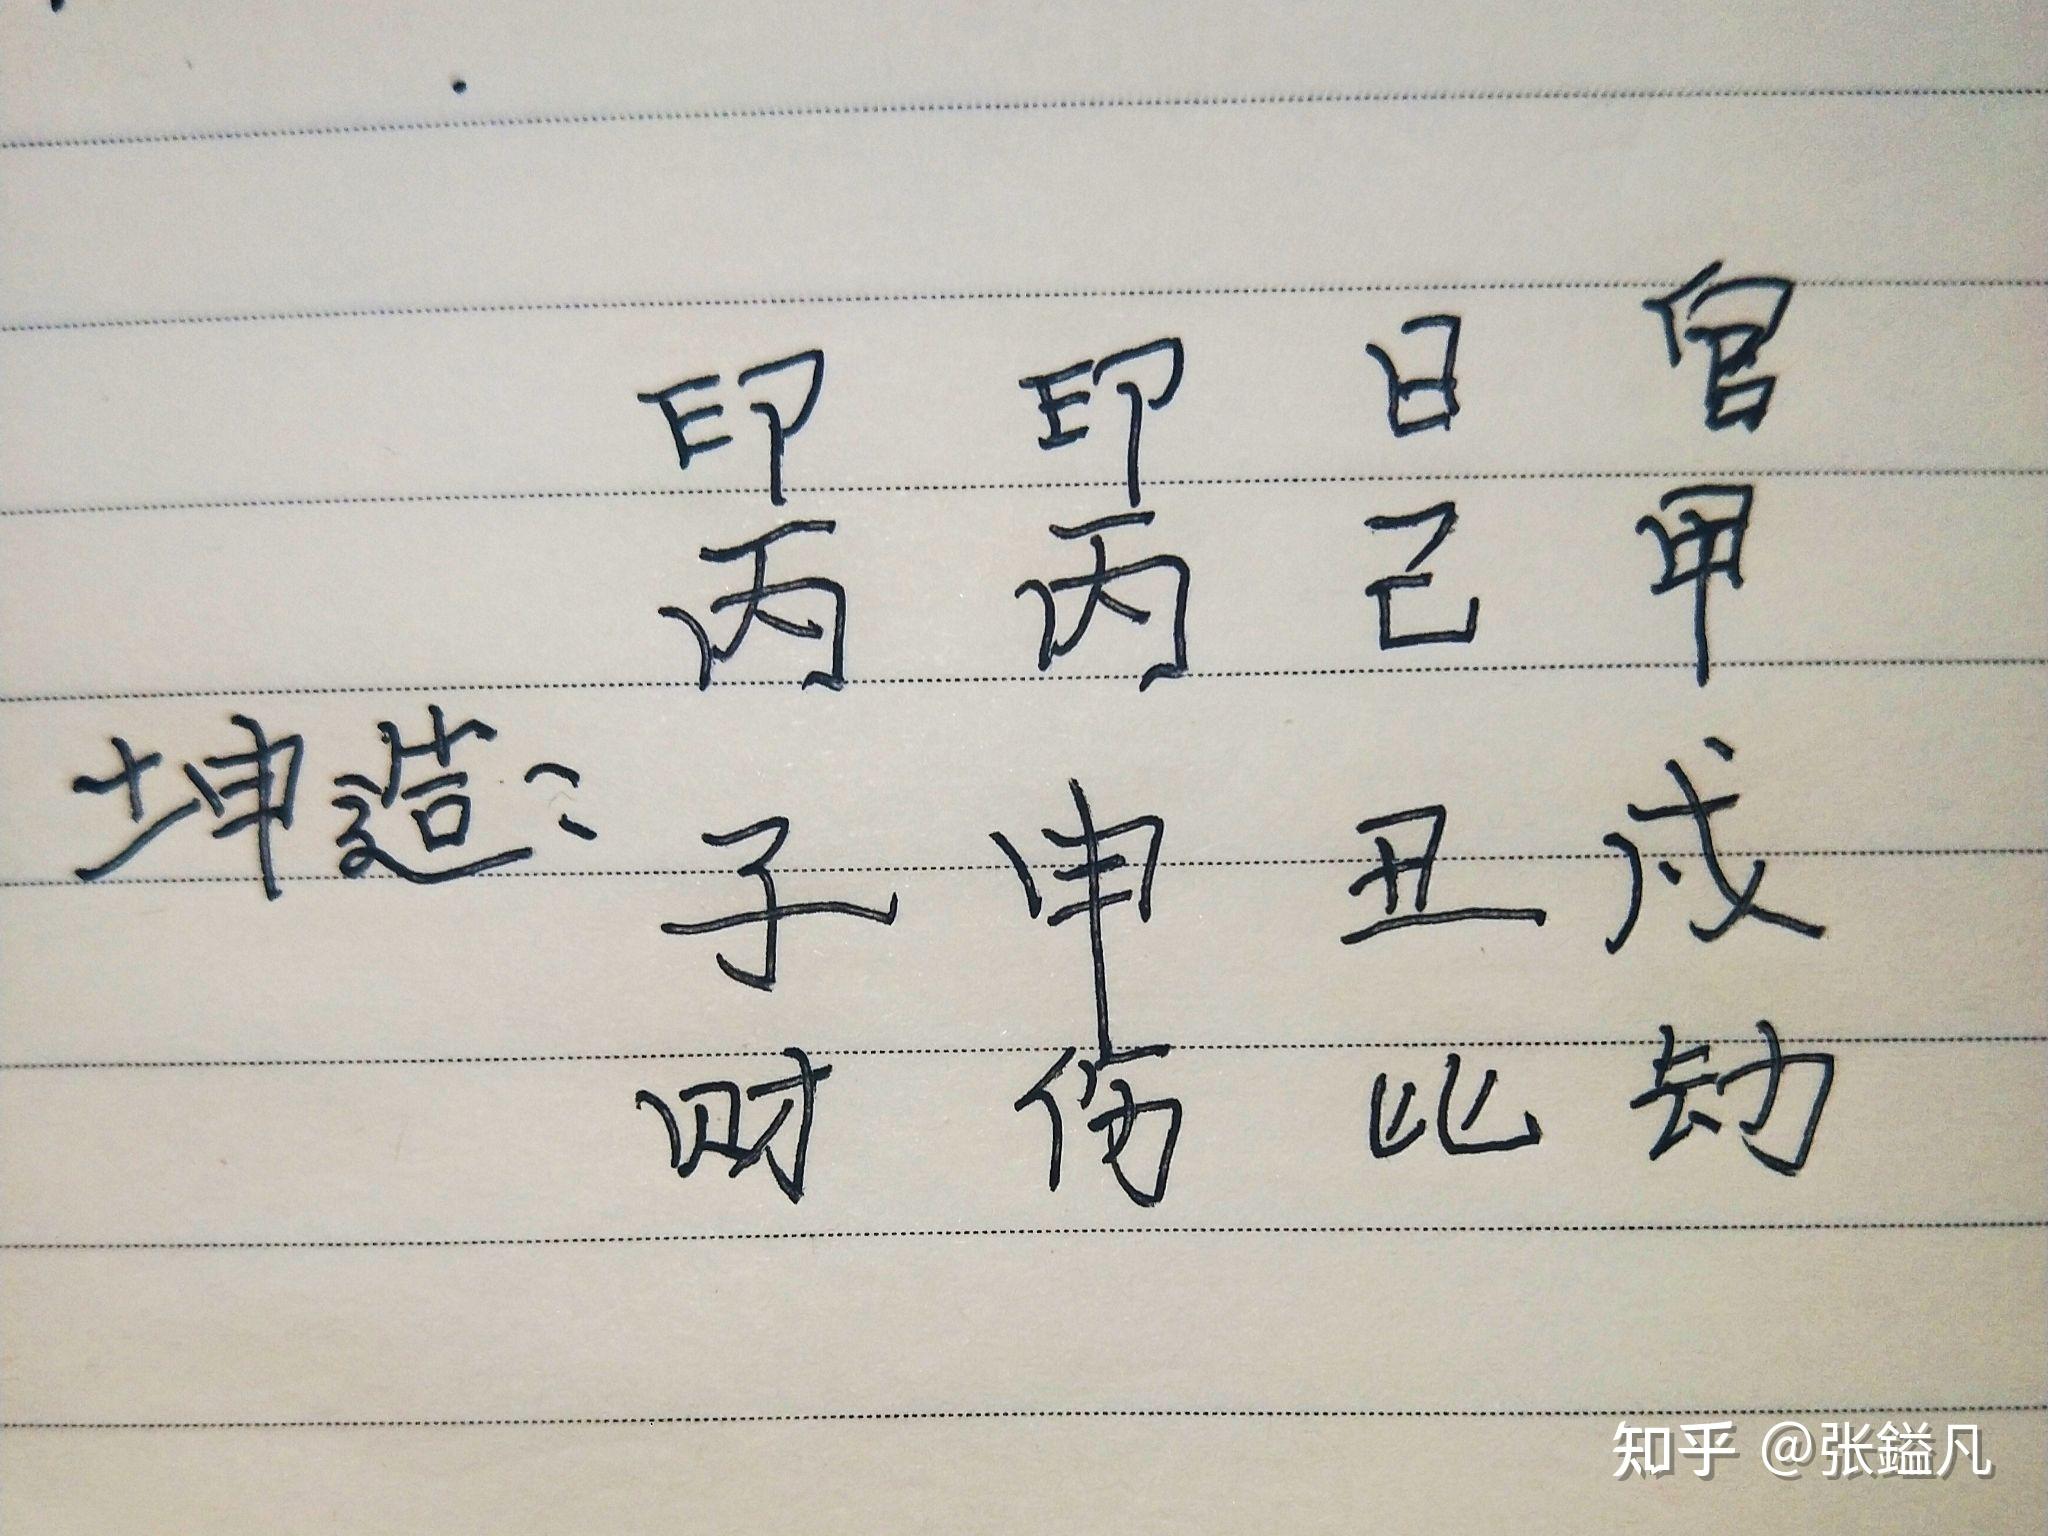 印 印 日 官
丙 丙 己 甲
坤造：
子 申 丑 戌
财 伤 比 劫
知乎 @张鎰凡